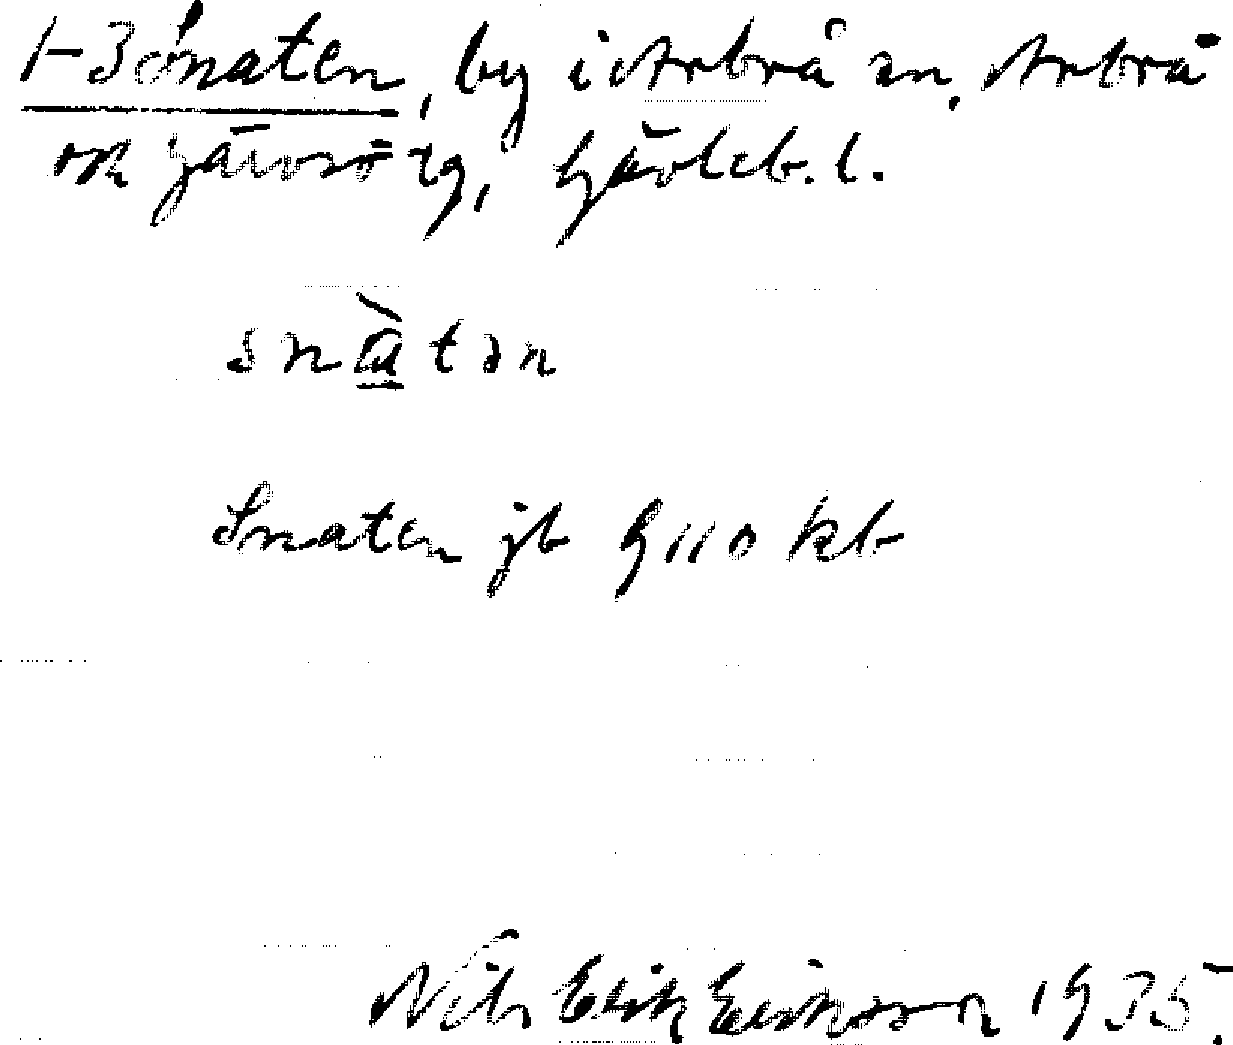 1-3 Snaten, by i Arbrå sn, Arbrå
ok Järvsö tg, Gävleb. l.
snàtən
Snaten jb G110 kb
Nils Erik Eriksson 1935.